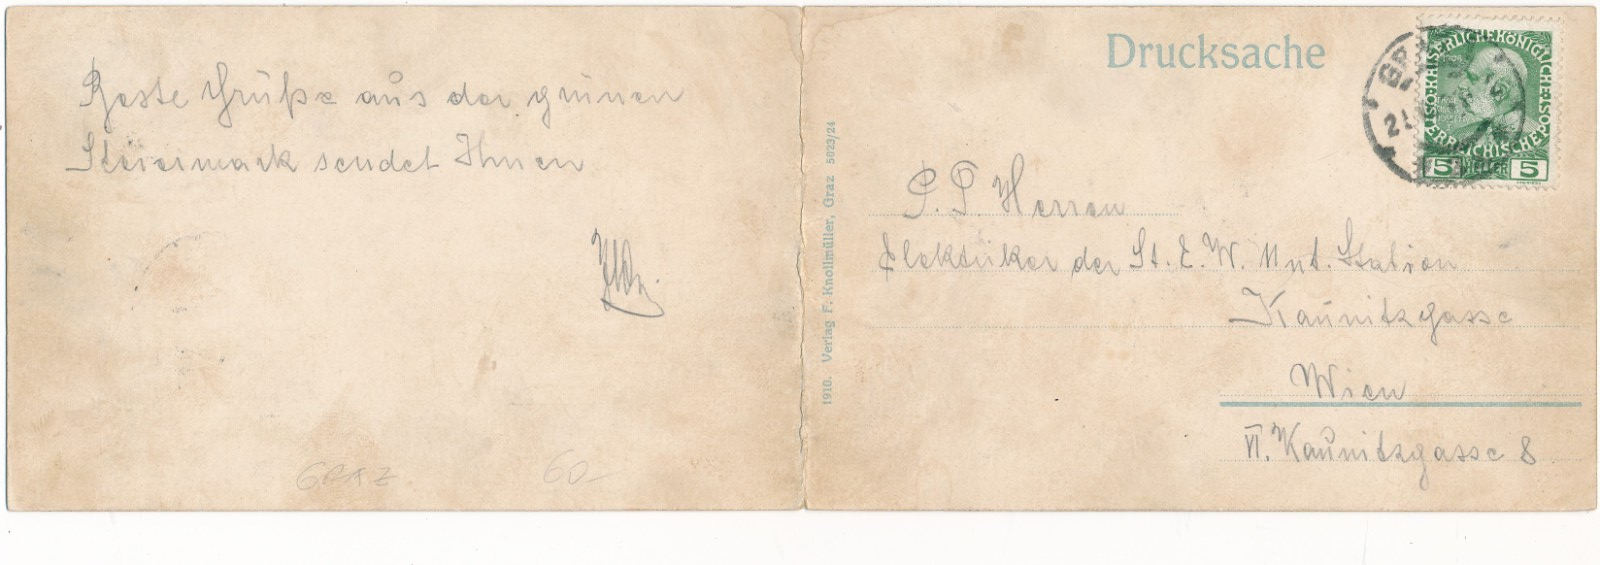 Beste Grüße aus der grünen
Steiermark sendet Ihnen
GRAZ 60-
1910. Verlag F. Knollmüller, Graz 5023/24
Drucksache
KAISERLICHE KÖNIGLICHE ÖSTERREICHISCHE POST
5 HELLER 5
P. T. Herren
Elektriker der St. E. W. Unt. Station
Kaunitzgasse
Wien
VI. Kaunitzgasse 8